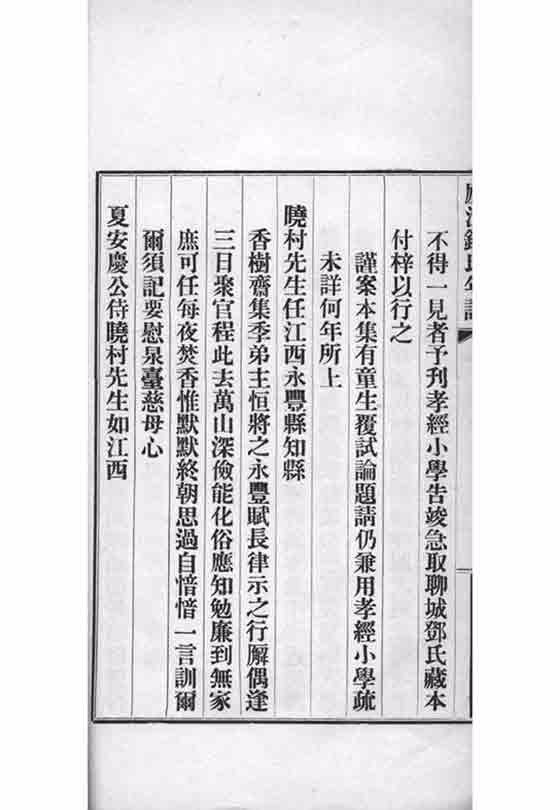 不得一見者予刊孝經小學告竣急取聊城鄧氏藏本
付梓以行之
謹案本集有童生覆試論題請仍兼用孝經小學疏
未詳何年所上
曉村先生任江西永豐縣知縣
香樹齋集季弟主恒將之永豐賦長律示之行廨偶逢
三日聚官程此去萬山深儉能化俗應知勉廉到無家
庶可任每夜焚香惟默默終朝思過自愔愔一言訓爾
爾須記要慰泉臺慈母心
夏安慶公侍曉村先生如江西